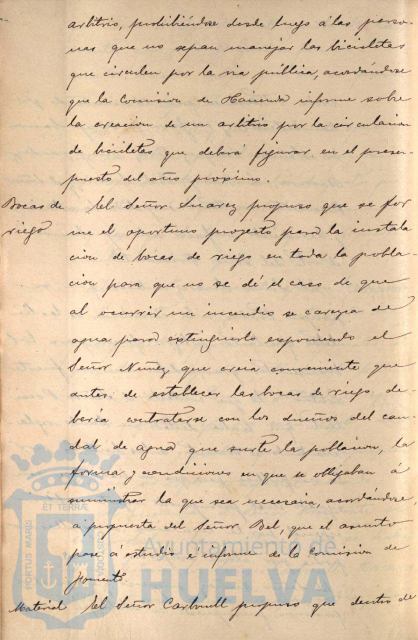 arbitrio, prohibiéndose desde luego á las perso-
nas que no sepan manejar las bicicletas
que circulen por la via pública, acordándose
que la Comision de Hacienda informe sobre
la creacion de un arbitrio por la circulacion
de bicicletas que deberá figurar en el presu-
puesto del año próximo.
Bocas de riego
El Señor Suarez propuso que se for
me el oportuno proyecto para la instala
cion de bocas de riego en toda la pobla-
cion para que no se dé el caso de que
al ocurrir un incendio se carezca de
agua para extinguirlo exponiendo el
Señor Nuñez que creia conveniente que
antes de establecer las bocas de riego de-
beria contratarse con los dueños del cau-
dal de agua que surte la poblacion, la
forma y condiciones en que se obligaban á
suministrar la que sea necesaria, acordándose,
á propuesta del Señor Bel, que el asunto
pase á estudio é informe de la Comision de
Fomento
Material
El Señor Carbonell propuso que dentro de
PORTUS MARIS
ET TERRÆ
Ayuntamiento de
HUELVA